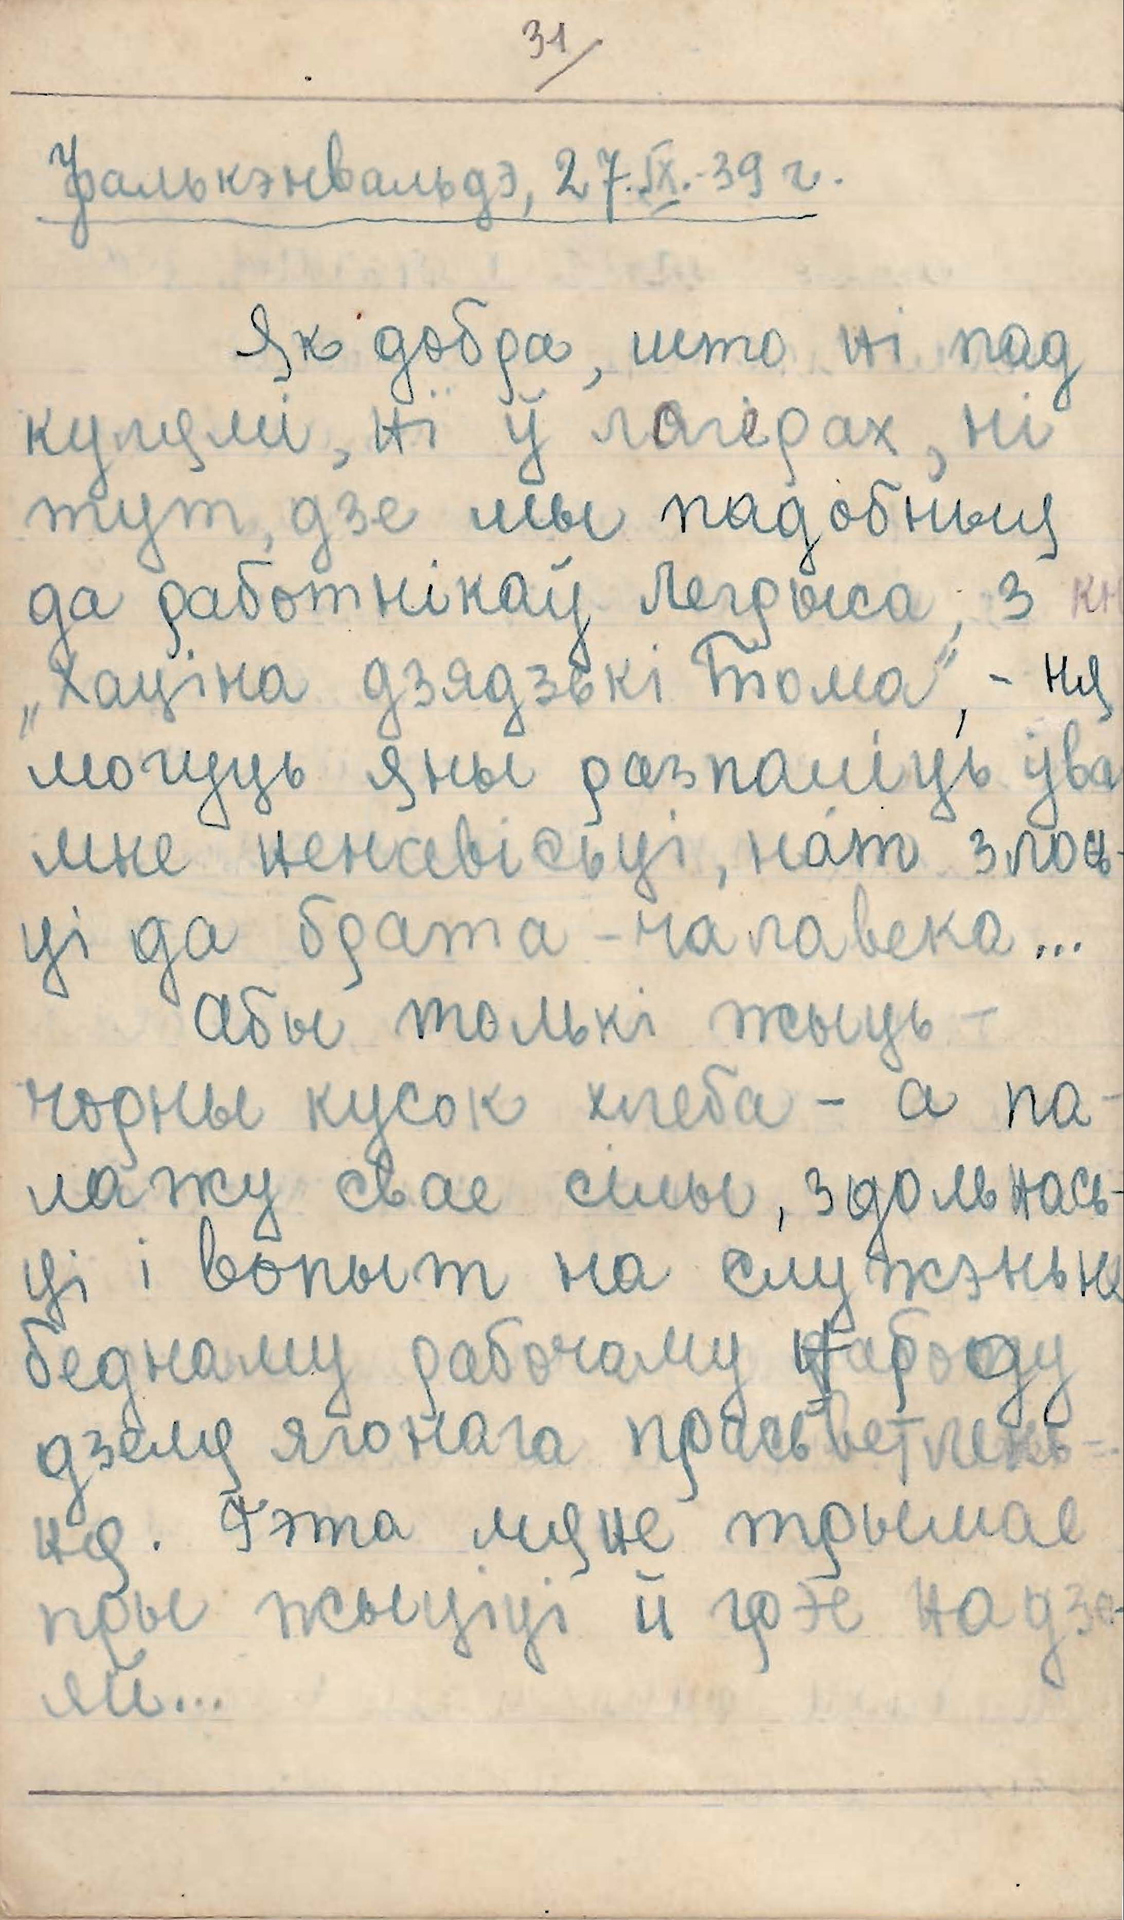 31
Фалькэнвальдэ, 27.IX.-39 г.
Як добра, што ні пад
кулямі, ні ў лагерах, ні
тут, дзе мы падобныя
да работнікаў Легрыса, з кн
„Хаціна дзядзькі Тома", - ня
могуць яны разпаліць ўва
мне ненавісьці, на́т злось-
ці да брата-чалавека...
Абы толькі жыць -
чорны кусок хлеба - а па-
лажу свае сілы, здольнась-
ці і вопыт на служэньне
беднаму рабочаму народу
дзеля ягонага прасьветлень-
ня. Гэта мяне трымае
пры жыцьці й грэе надзе-
яй...